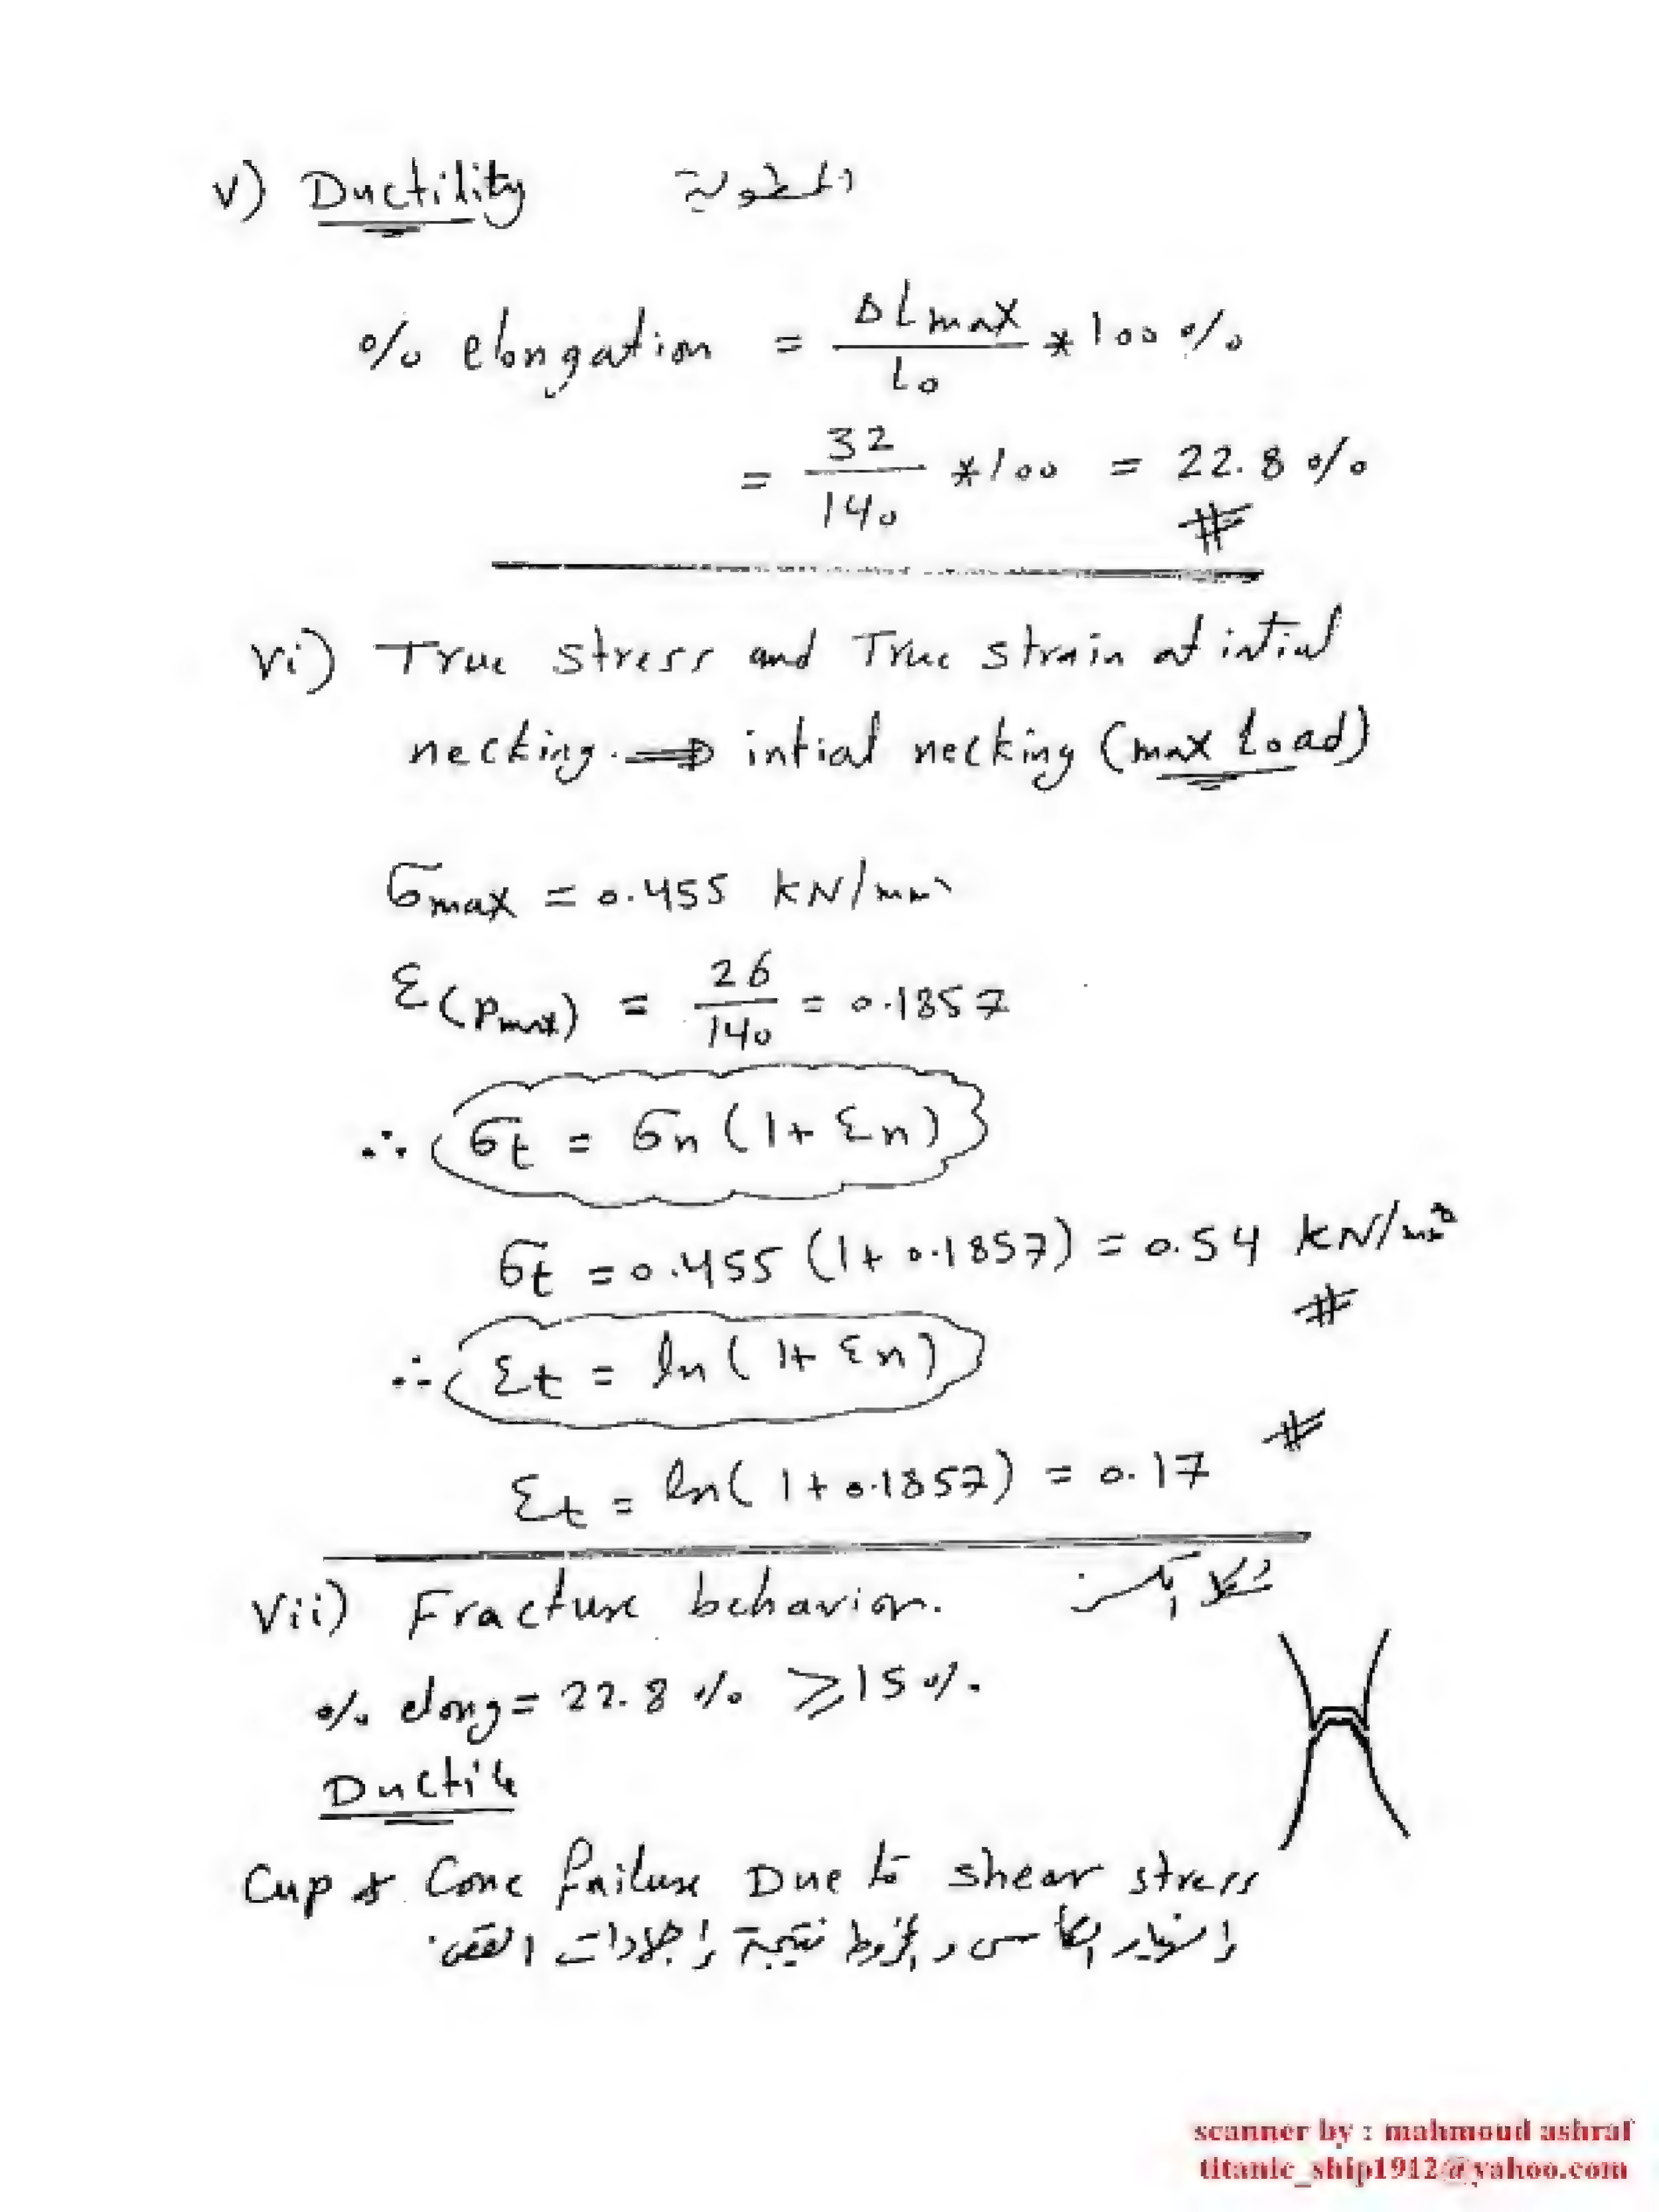 v) Ductility الممطولية
% elongation = ΔLmax / Lo * 100 %
= 32 / 140 * 100 = 22.8 %
#
vi) True stress and True strain at intial
necking. ⇒ intial necking (max Load)
σmax = 0.455 kN/mm²
ε(Pmax) = 26 / 140 = 0.1857
∴ σt = σn (1 + εn)
σt = 0.455 (1 + 0.1857) = 0.54 kN/mm²
#
∴ εt = ln (1 + εn)
#
εt = ln (1 + 0.1857) = 0.17
vii) Fracture behavior. شكل الكسر
% elong = 22.8 % ≥ 15 %.
Ductile
Cup & Cone failure Due to shear stress
إنهيار الكأس و المخروط نتيجة إجهادات القص.
scanner by : mahmoud ashraf
titanic_ship1912@yahoo.com